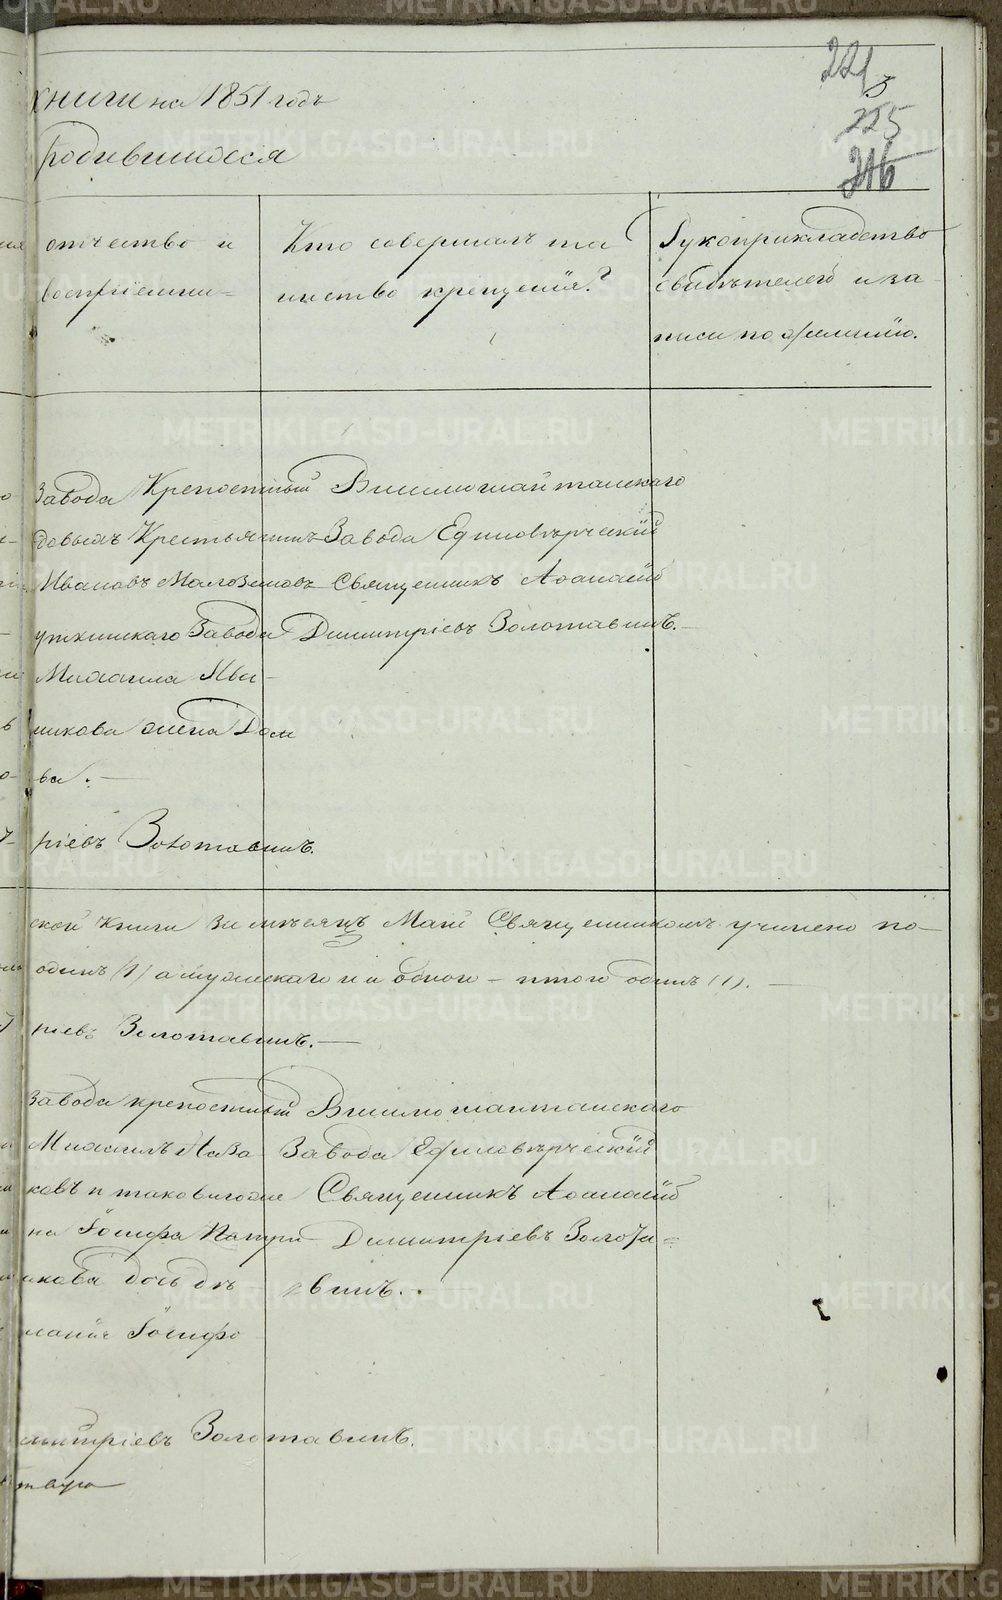 221
3
225
216
книги на 1851 годъ
родившиеся
отчество и
восприемни=
Кто совершалъ та
инство крещенія?
Рукоприкладство
свидѣтелей и за-
писи по желанію.
завода Крепостный
довыхъ Крестьянинъ
Ивановъ Малозёмовъ
уткинскаго Завода
Михаила
никова жена Дом
ва. —
ріевъ Золотавинъ.
Вышлошайтанскаго
Завода Единовѣрческій
Священникъ Афанасій
Димитріевъ Золотавинъ. —
ской Книги за мѣсяцъ Май Священникомъ учинено по-
одинъ (1) а мужескаго ни одного – итого одинъ (1). —
ріевъ Золотавинъ. —
завода крепостный
Михаилъ
ковъ и таковагоже
на Іосифа
икова дочь дѣ
Іосифо
Вышлошайтанскаго
Завода Единовѣрческій
Священникъ Афанасій
Димитріевъ Золота=
винъ.
митріевъ Золотавинъ.
METRIKI.GASO-URAL.RU